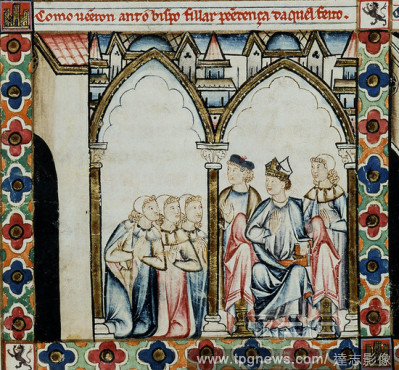 Como uẽeron antõ bispo fillar pẽetença daquel feito.
www.tpgnews.com / 達志影像